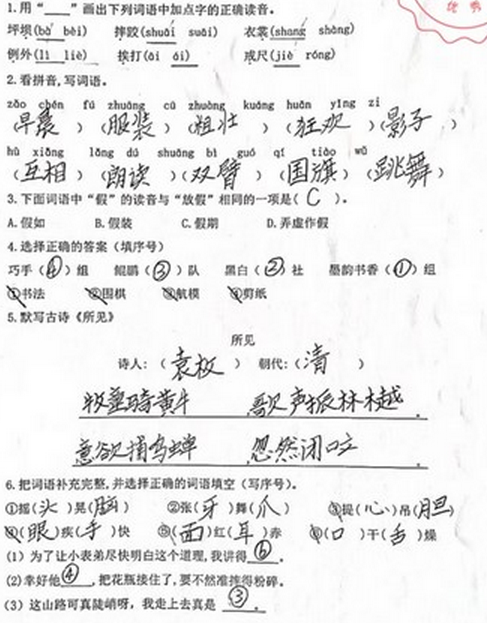 1.用“____”画出下列词语中加点字的正确读音。
坪坝(bà bèi) 摔跤(shuāi suāi) 衣裳(shang shàng)
例外(lì liè) 挨打(āi ái) 戒尺(jiè róng)
2.看拼音,写词语。
zǎo chén fú zhuāng cū zhuàng kuáng huān yǐng zi
(早晨)(服装)(粗壮)(狂欢)(影子)
hù xiāng lǎng dú shuāng bì guó qí tiào wǔ
(互相)(朗读)(双臂)(国旗)(跳舞)
3.下面词语中“假”的读音与“放假”相同的一项是(C)。
A.假如 B.假装 C.假期 D.弄虚作假
4.选择正确的答案(填序号)
巧手(④)组 鲲鹏(③)队 黑白(②)社 墨韵书香(①)组
①书法 ②围棋 ③航模 ④剪纸
5.默写古诗《所见》
所见
诗人:(袁枚) 朝代:(清)
牧童骑黄牛,歌声振林樾。
意欲捕鸣蝉,忽然闭口立。
6.把词语补充完整,并选择正确的词语填空(写序号)。
①摇(头)晃(脑) ②张(牙)舞(爪) ③提(心)吊(胆)
④(眼)疾(手)快 ⑤(面)红(耳)赤 ⑥(口)干(舌)燥
(1)为了让小表弟尽快明白这个道理,我讲得⑥。
(2)幸好他④,把花瓶接住了,要不然准摔得粉碎。
(3)这山路可真陡峭呀,我走上去真是③。